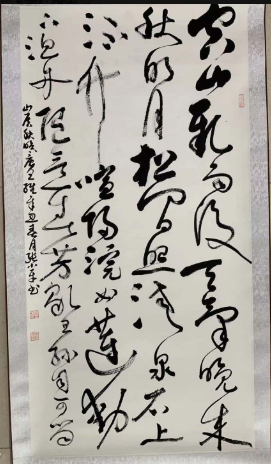 空山新雨後天氣晚來
秋明月松間照清泉石上
流竹喧歸浣女蓮動
下漁舟隨意春芳歇王孫自可留
山居秋暝唐王維辛丑春月